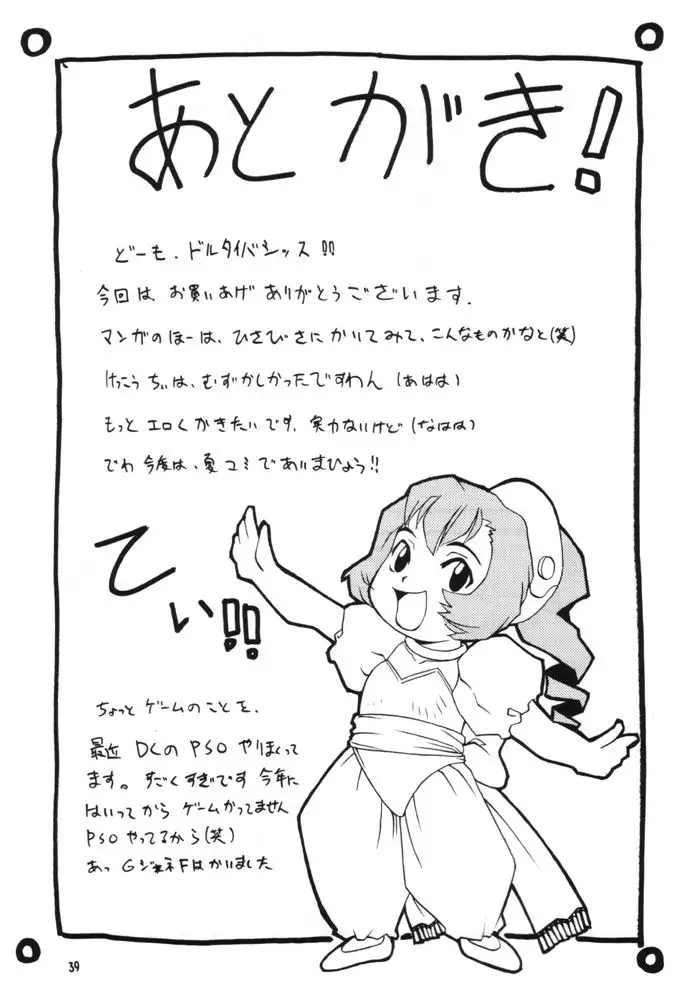 あとがき!
どーも、ドルタイバシッス!!
今回は、お買いあげありがとうございます.
マンガのほーは、ひさびさにかいてみて、こんなものかなと(笑)
けっこうちぃは、むずかしかったですわん (あはは)
もっとエロくかきたいです、実力ないけど(なはは)
でわ今度は、夏コミであいまひょう!!
てぃ!!
ちょっとゲームのことを、
最近 DCの PSO やりまくって
ます。すごくすぎです 今年に
はいってから ゲームかってません
PSO やってるから(笑)
あっ Gジェネ F はかいました
39